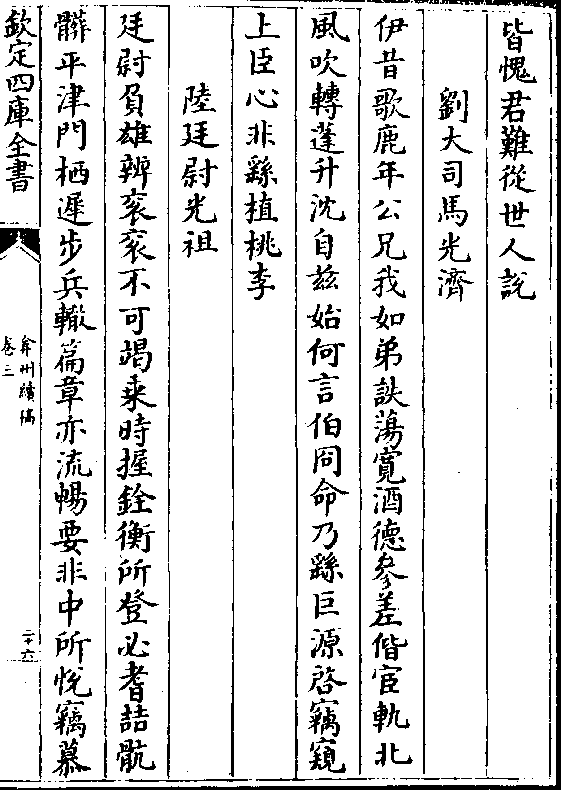 皆愧君難從世人說
劉大司馬光濟
伊昔歌鹿年公兄我如弟詄蕩寛酒德參差偕宦軌北
風吹轉蓬升沈自兹始何言伯冏命乃繇巨源啓竊窺
上臣心非繇植桃李
陸廷尉光祖
廷尉負雄辨衮衮不可竭乗時握銓衡所登必耆喆骯
髒平津門栖遲步兵轍篇章亦流暢要非中所悅竊慕
欽定四庫全書
弇州續稿
卷三
二十六